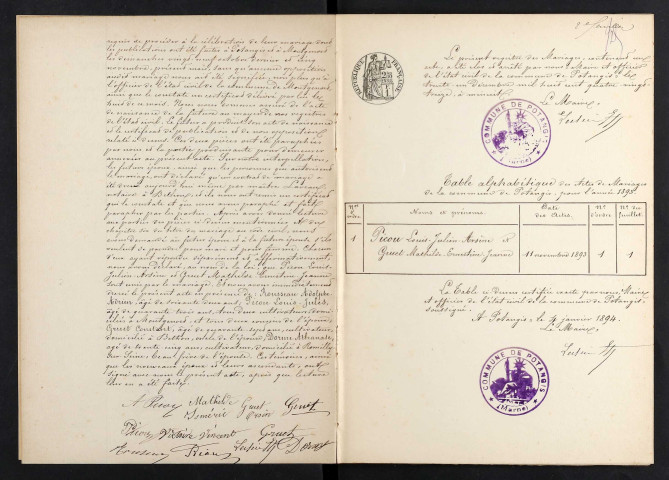 requis de procéder à la célébration de leur mariage dont
les publications ont été faites à Potangis et à Montgenost
les dimanches vingt neuf octobre dernier et cinq
novembre, présent mois sans qu'aucune opposition
audit mariage nous ait été signifiée, non plus qu'à
l'officier de l'état civil de la commune de Montgenost,
ainsi que le constate un certificat délivré par lui le
huit de ce mois. Nous
de naissance de la future au moyen de nos registres
de l'état civil. Le futur a produit son acte de naissance
et le certificat de publication et de non opposition
relaté ci-dessus. Ces deux pièces ont été paraphées
par nous et la partie produisante pour demeurer
annexées au présent acte. Sur notre interpellation,
les futurs époux, ainsi que les personnes qui autorisent
le mariage, ont déclaré qu'un contrat de mariage a
été dressé aujourd'hui même par maître
notaire à Bethon, et ils nous ont remis un certificat
qui le constate et que nous avons paraphé et fait
parapher par les parties. Après avoir donné lecture
aux parties des pièces ci-dessus mentionnées et du
chapitre six du titre du mariage au code civil, nous
avons demandé au futur époux et à la future épouse s'ils
veulent se prendre pour mari et pour femme. Chacun
d'eux ayant répondu séparément et affirmativement,
nous avons déclaré, au nom de la loi, que Picou Louis-
Julien-Arsène et Gruet Mathilde Ernestine Jeanne
sont unis par le mariage. Et nous avons immédiatement
dressé le présent acte en présence de: Rousseau Adolphe
âgé de soixante deux ans, Picou Louis-Jules,
âgé de quarante trois ans, tous deux cultivateurs, domi-
ciliés à Montgenost, et tous deux cousins de l'époux,
Gruet Constant, âgé de quarante sept ans, cultivateur,
domicilié à Bethon, oncle de l'épouse, Athanase,
âgé de trente cinq ans, cultivateur, domicilié à Romilly
sur Seine, beau frère de l'épouse. Les témoins, ainsi
que les nouveaux époux et leurs ascendants, ont
signé avec nous le présent acte, après que lecture
leur en a été faite.
A Picou Mathilde Gruet Gruet
Picou Victoire Vincent Gruet
Rousseau Picou
RÉPUBLIQUE FRANÇAISE
Le présent registre de Mariages, contenant un
acte, a été clos et arrêté par nous, Maire et officier
de l'état civil de la commune de Potangis le
trente un Décembre mil huit cent quatre vingt-
treize, à minuit.
Le Maire,
COMMUNE DE POTANGIS
(Marne)
Table alphabétique des Actes de Mariages
de la commune de Potangis, pour l'année 1893.
Nos d'ordre | Noms et prénoms. | Date des Actes. | No d'ordre | No du feuillet
1 | Picou Louis-Julien Arsène et
Gruet Mathilde-Ernestine-Jeanne | 11 novembre 1893 | 1 | 1
La Table ci-dessus certifiée exacte par nous, Maire
et officier de l'état civil de la commune de Potangis
soussigné.
A Potangis, le 4 janvier 1894.
Le Maire,
COMMUNE DE POTANGIS
(Marne)